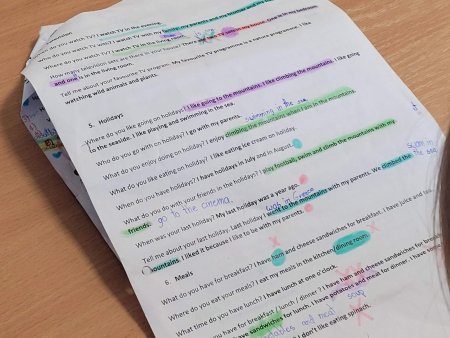 do you watch TV? I watch TV in the evening.
Who do you watch TV with? I watch TV with my family: my parents and my brother and my
Where do you watch TV? I watch TV in the living room.
How many television sets are there in your house? in my house. One is in my bedroom
and one is in the living room.
Tell me about your favourite TV program. My favourite TV programme is a nature programme. I like
watching wild animals and plants.
5. Holidays
Where do you like going on holidays? I like going to the mountains. I like climbing the mountains. I like going
to the seaside. I like playing and swimming in the sea.
Who do you go with on holiday? I go with my parents. swimming in the sea
What do you enjoy doing on holiday? I enjoy climbing the mountains when I am in the mountains.
What do you like eating on holiday? I like eating ice cream on holiday.
When do you have holiday? I have holidays in July and in August.
What do you do with your friends in the holiday? I play football, swim and climb the mountains with my
friends. go to the cinema.
When was your last holiday? My last holiday was a year ago. was in Greece
swim in the sea
Tell me about your last holiday. Last holiday I went to the mountains with my parents. We climbed the
mountains. I liked it because I like to be with my parents.
6. Meals
What do you have for breakfast? I have ham and cheese sandwiches for breakfast. I have juice and tea.
Where do you eat your meals? I eat my meals in the kitchen/dining room.
What time do you have lunch? I have lunch at one o'clock.
do you have for breakfast / lunch / dinner? I have ham and cheese sandwiches for breakfast
have sandwiches for lunch. I have potatoes and meat for dinner. I have some
soup
and meat
I don't like eating spinach.